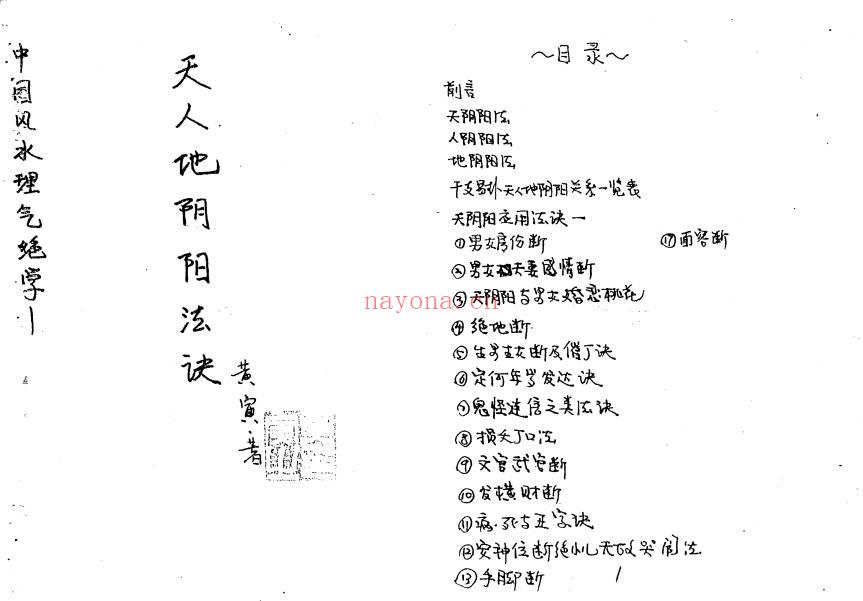 中国风水理气绝学1
天人地阴阳法诀
黄寅·著
nayona.cn
～目录～
前言
天阴阳法
人阴阳法
地阴阳法
干支易卦天人地阴阳关系一览表
天阴阳应用法诀一
①男女房份断
②男女夫妻感情断
③天阴阳与男女婚恋桃花
④绝地断
⑤生男生女断及催丁诀
⑥定何年岁发达诀
⑦鬼怪迷信之类法诀
⑧损丁口法
⑨文官武官断
⑩发横财断
⑪病·死与正字诀
⑫安神位断绝小儿无故哭闹法
⑬手脚断
⑰面容断
1